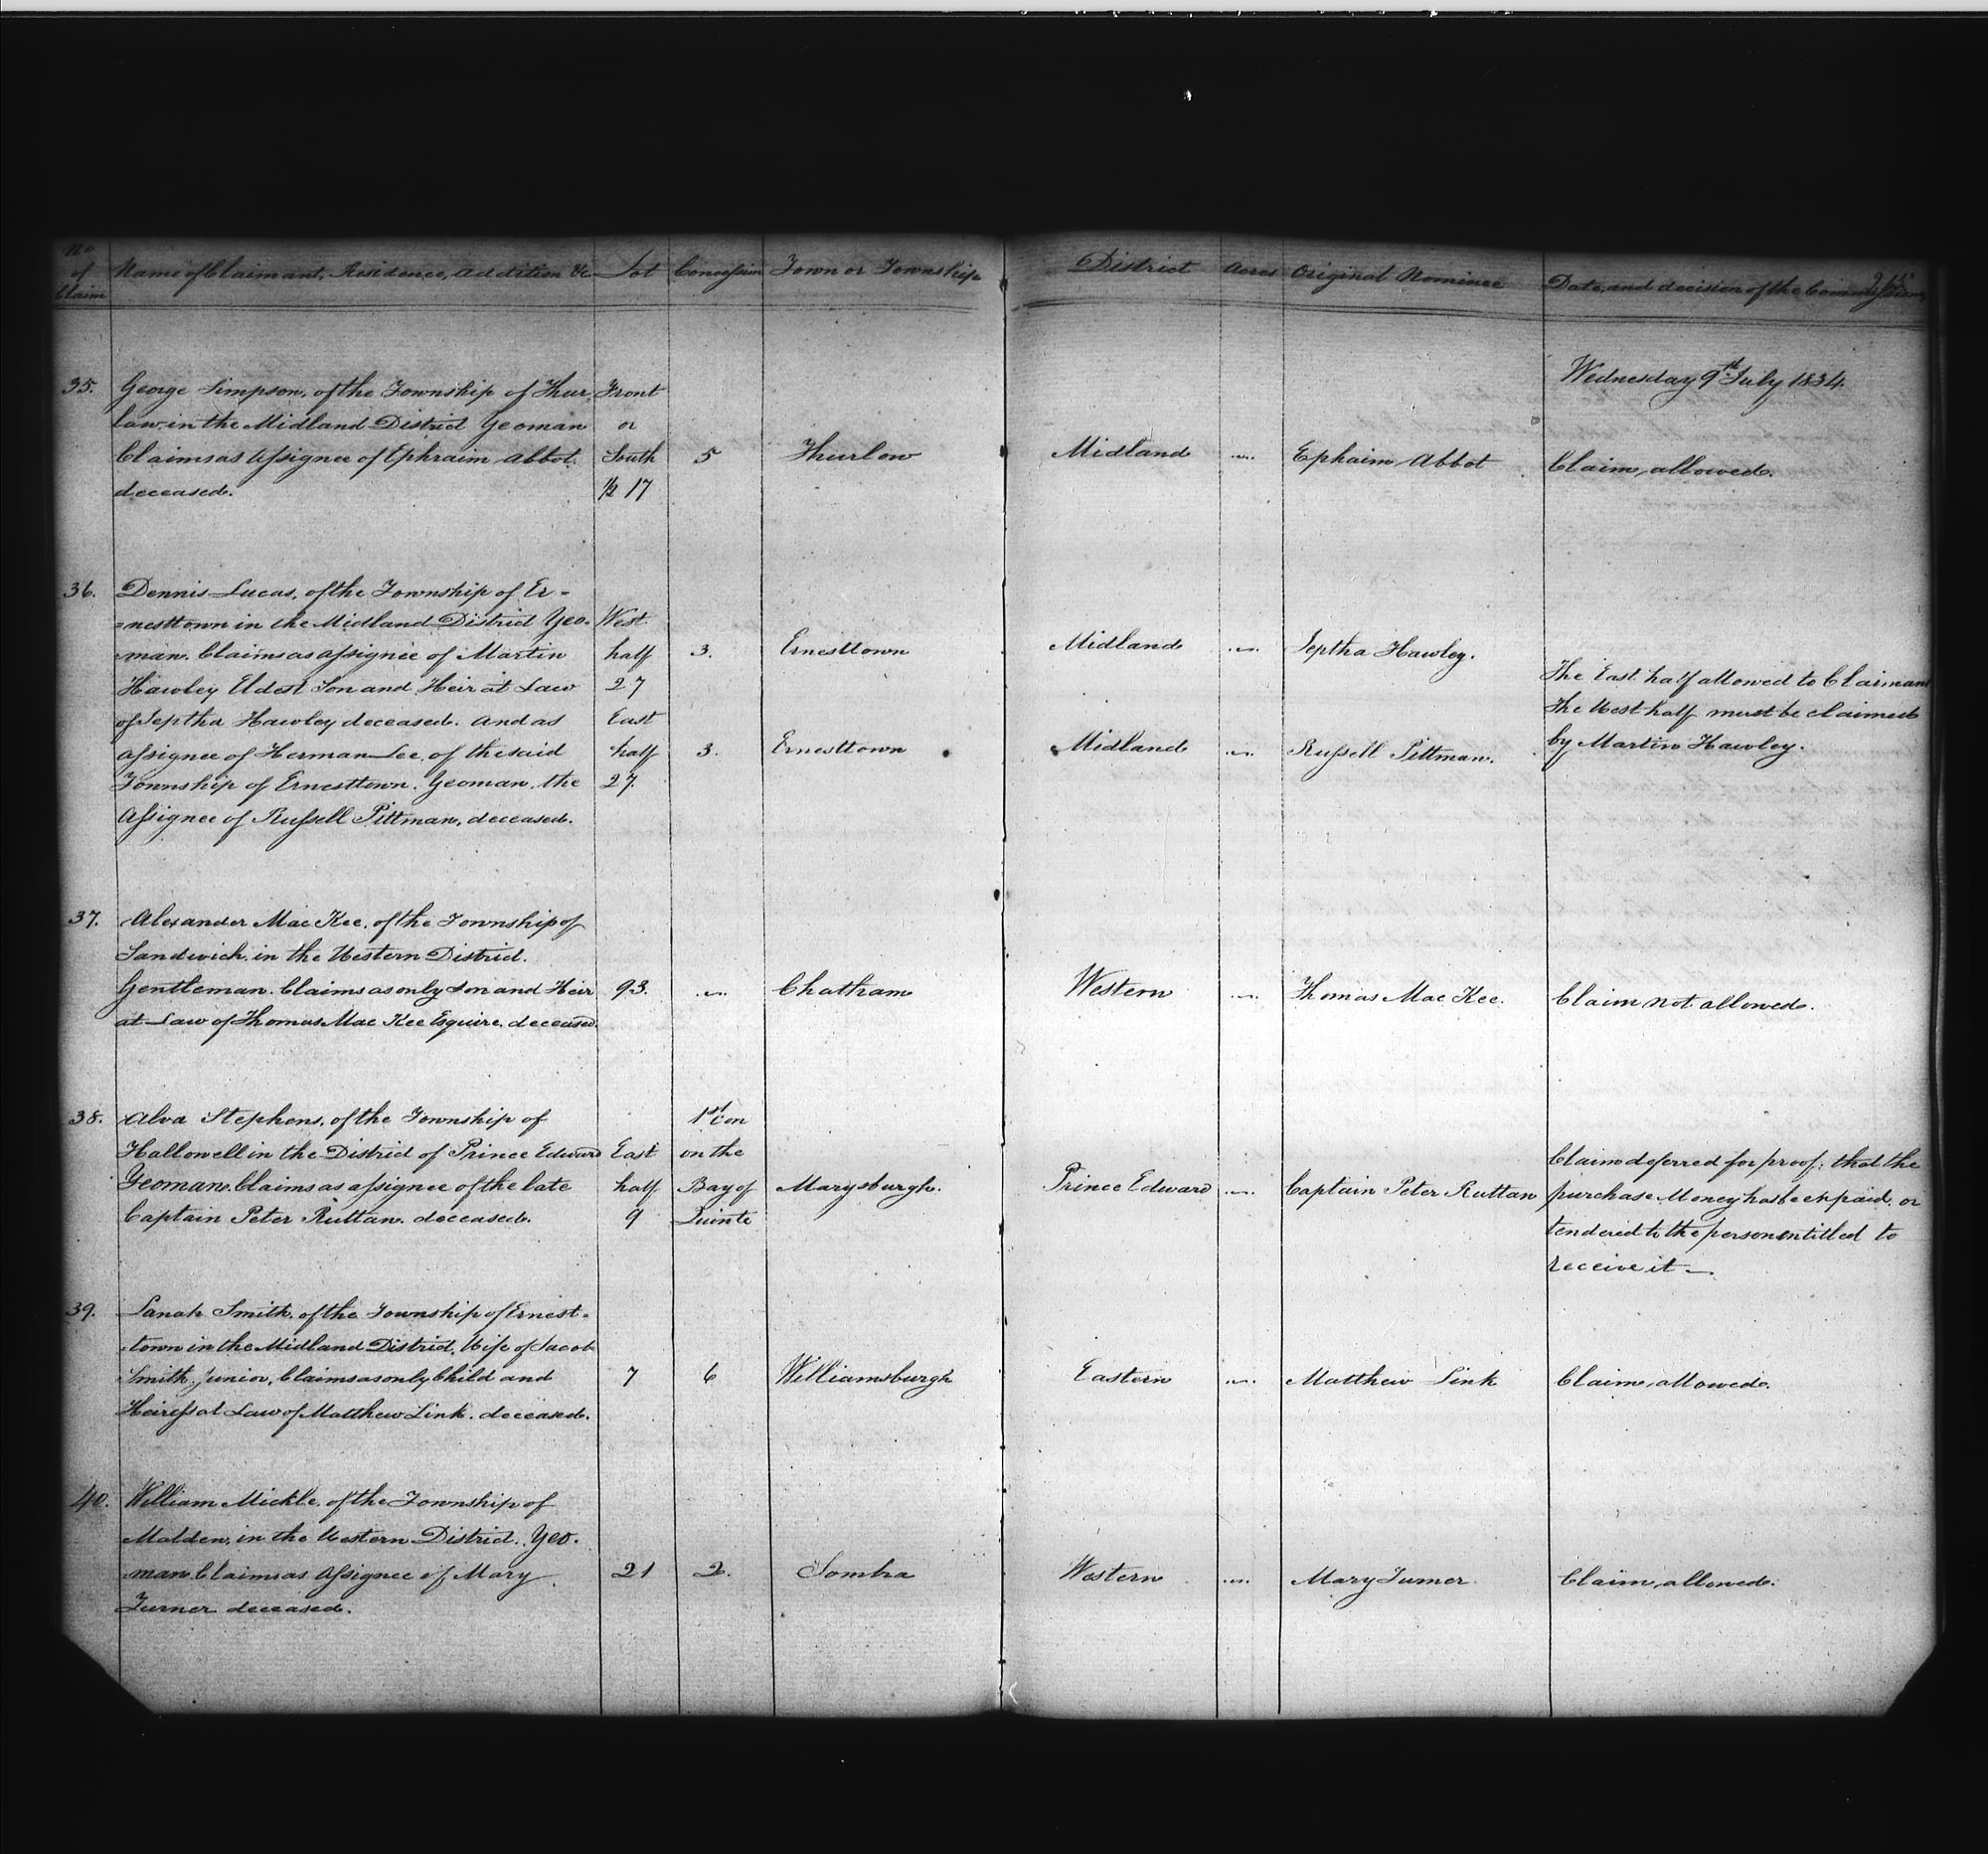 No of Claim | Name of Claimant, Residence, addition &c | Lot | Concession | Town or Township | District | Acres | Original Nominee | Date, and decision of the Commissioners
Wednesday 9th July 1834.
35. George Simpson, of the Township of Thur- | Front
low in the Midland District Yeoman | or
Claims as Assignee of Ephraim Abbot. | South | 5 | Thurlow | Midland | " | Ephaim Abbot | Claim, allowed.
deceased. | ½ 17
36. Dennis Lucas, of the Township of Er=
=nesttown in the Midland District Yeo- | West
man. Claims as assignee of Martin | half | 3. | Ernesttown | Midland | " | Jeptha Hawley.
Hawley Eldest Son and Heir at Law | 27 | The East half allowed to Claimant
of Jeptha Hawley deceased. and as | East | The West half must be claimed
assignee of Herman Lee, of the said | half | 3. | Ernesttown | Midland | " | Russell Pittman. | by Martin Hawley.
Township of Ernesttown. Yeoman, the | 27.
Assignee of Russell Pittman, deceased.
37. Alexander Mac Kee, of the Township of
Sandwich, in the Western District.
Gentleman. Claims as only Son and Heir | 93. | " | Chatham | Western | " | Thomas Mac Kee. | Claim not allowed.
at Law of Thomas Mac Kee Esquire. deceased.
38. Alva Stephens, of the Township of | 1st Con
Hallowell in the District of Prince Edward | East | on the | Claim deferred for proof, that the
Yeoman. Claims as assignee of the late | half | Bay of | Marysburgh. | Prince Edward | " | Captain Peter Ruttan | purchase Money has been paid, or
Captain Peter Ruttan. deceased. | 9 | Quinte | tendered to the person entitled to
receive it —
39. Sarah Smith, of the Township of Ernest-
town in the Midland District, Wife of Jacob
Smith, Junior, Claims as only Child and | 7 | 6 | Williamsburgh | Eastern | " | Matthew Link | Claim, allowed.
Heiress at Law of Matthew Link. deceased.
40. William Mickle, of the Township of
Malden, in the Western District. Yeo-
man. Claims as Assignee of Mary | 21 | 2. | Sombra | Western | " | Mary Turner | Claim, allowed.
Turner deceased.